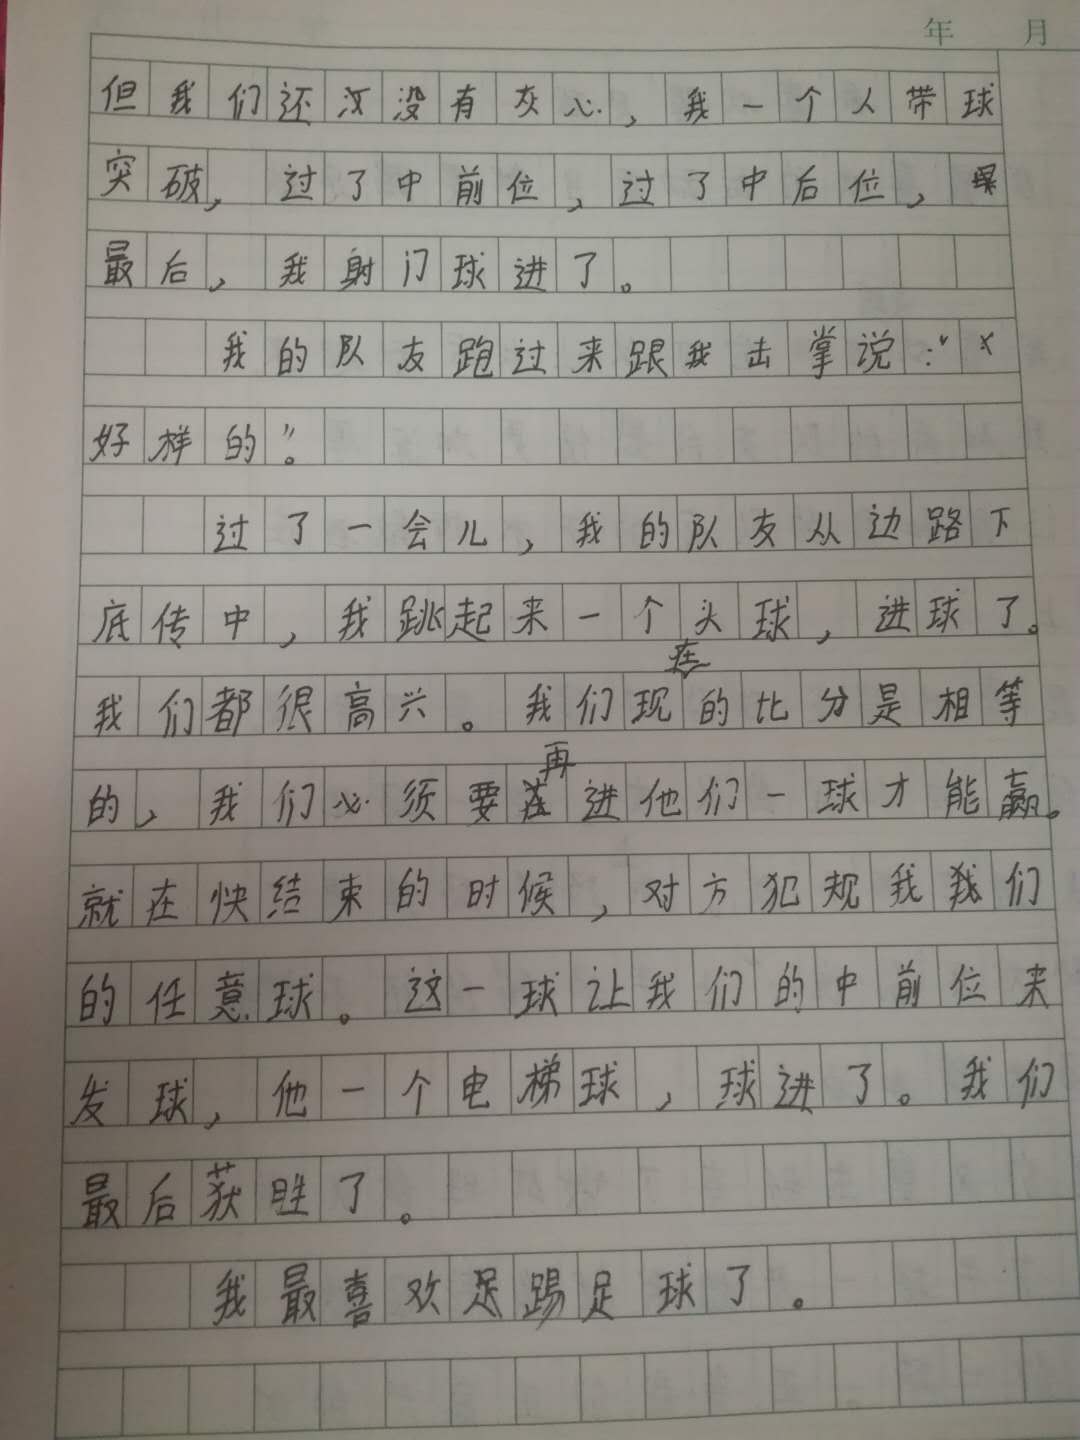 年 月
但我们还没没有灰心，我一个人带球
突破，过了中前位，过了中后位，
最后，我射门球进了。
我的队友跑过来跟我击掌说：“
好样的”。
过了一会儿，我的队友从边路下
底传中，我跳起来一个头球，进球了。
我们都很高兴。我们现在的比分是相等
的，我们必须要再进他们一球才能赢。
就在快结束的时候，对方犯规我我们
的任意球。这一球让我们的中前位来
发球，他一个电梯球，球进了。我们
最后获胜了。
我最喜欢足踢足球了。